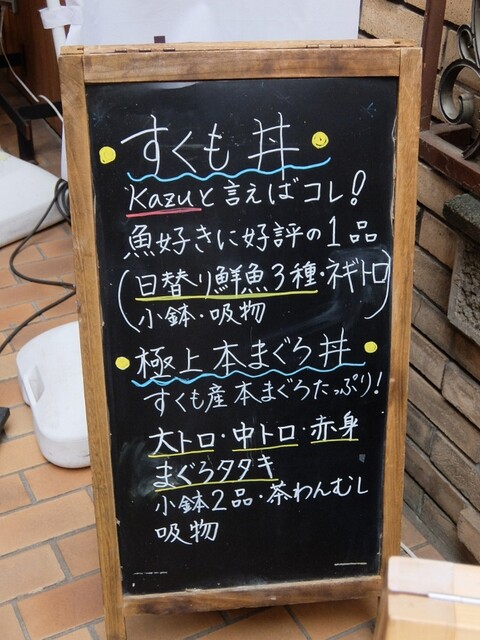 すくも丼
Kazuと言えばコレ!
魚好きに好評の1品
(日替り鮮魚3種・ネギトロ
小鉢・吸物)
極上本まぐろ丼
すくも産本まぐろたっぷり!
大トロ・中トロ・赤身
まぐろタタキ
小鉢2品・茶わんむし
吸物